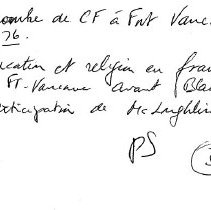 ombre de CF à Fort Vanc
26.
cation et religion en fran
FT-Vancouve avant Blan
articipation de McLoghlin
PS